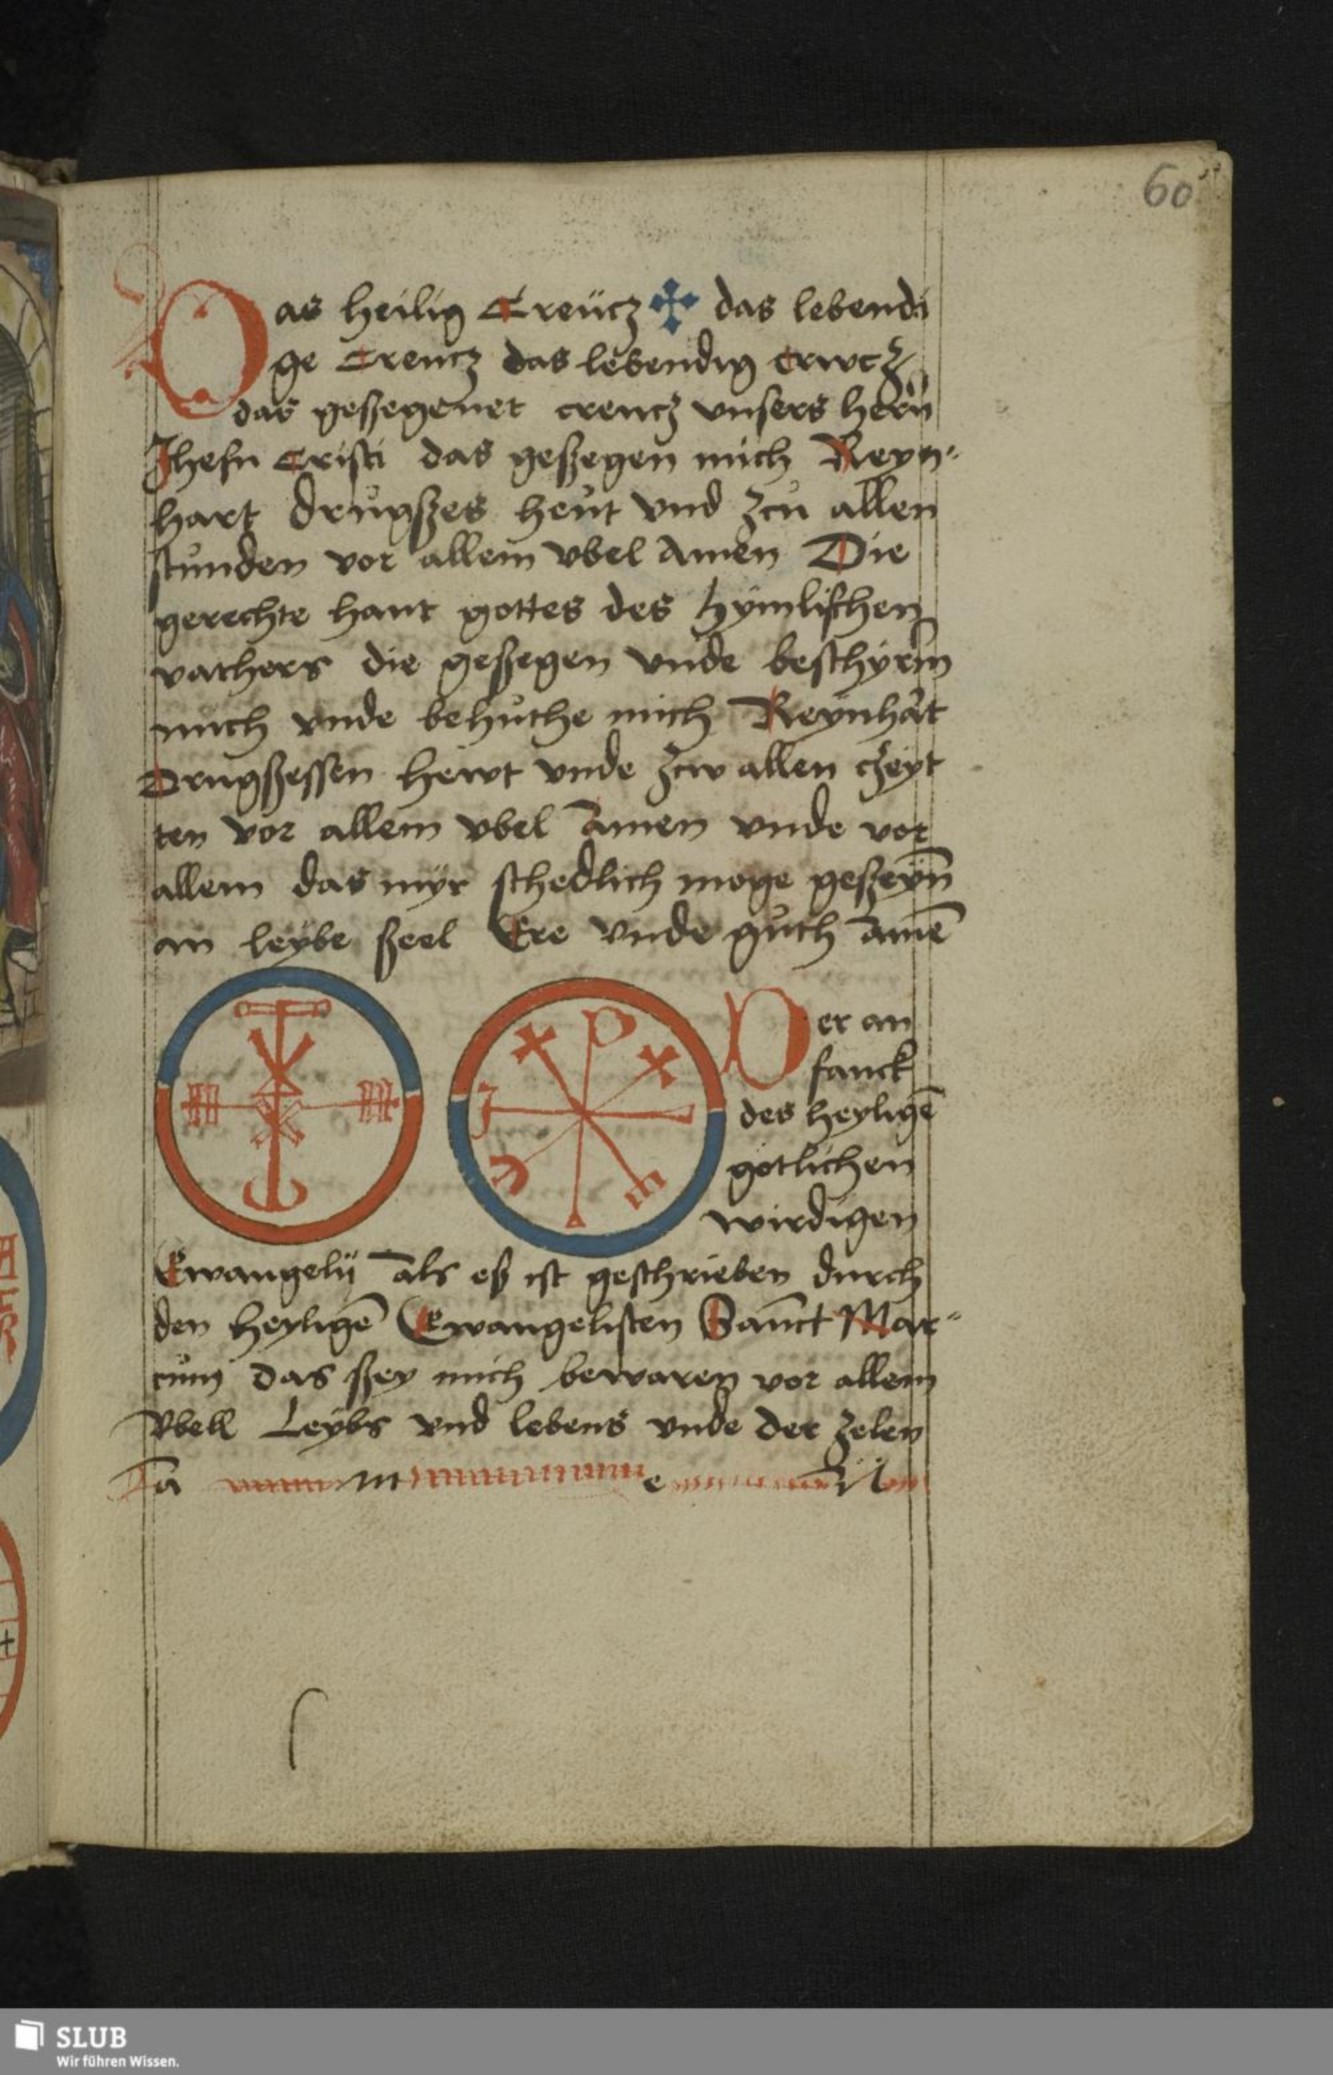 60
Das heilig Creücz ✠ das lebendi
ge Creucz das lebendig Crwcz
das geßegenet creucz vnsers hern̄
Jhesu Cristi das geßegen mich Reyn⸗
hart drugßes heut vnd zcu allen
stunden vor allem vbel Amen Die
gerechte hant gottes des hymlischen
vathers die geßegen vnde beschyrm̄
mich vnde behuthe mich Reynhart
Drugßessen hewt vnde zcw allen czeyt
ten vor allem vbel Amen vnde vor
allem das myr schedlich moge geßeyn̄
an leybe ßeel Ere vnde guth Amē
Der an
fanck
des heyligē
gotlichen
wirdigen
Ewangelij als eß ist geschrieben durch
den heyligē Ewangelisten Sanct Mar⸗
cum das ßey mich bewaren vor allem
Vbell Leybs vnd lebens vnde der zelen
a m e n
SLUB
Wir führen Wissen.